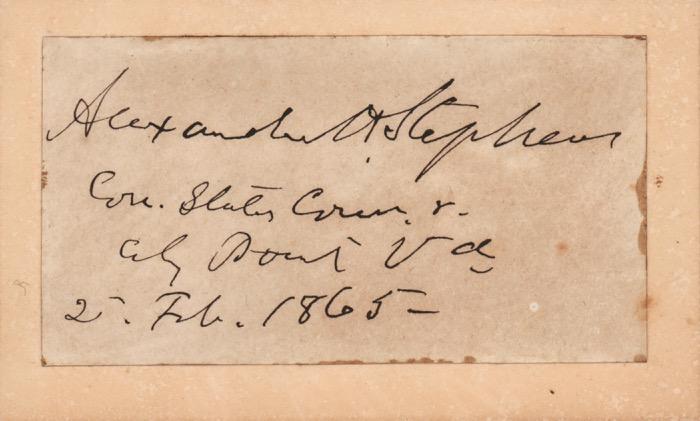 Alexander H. Stephens
Con. States Com. r.
City Point Va
2. Feb. 1865–